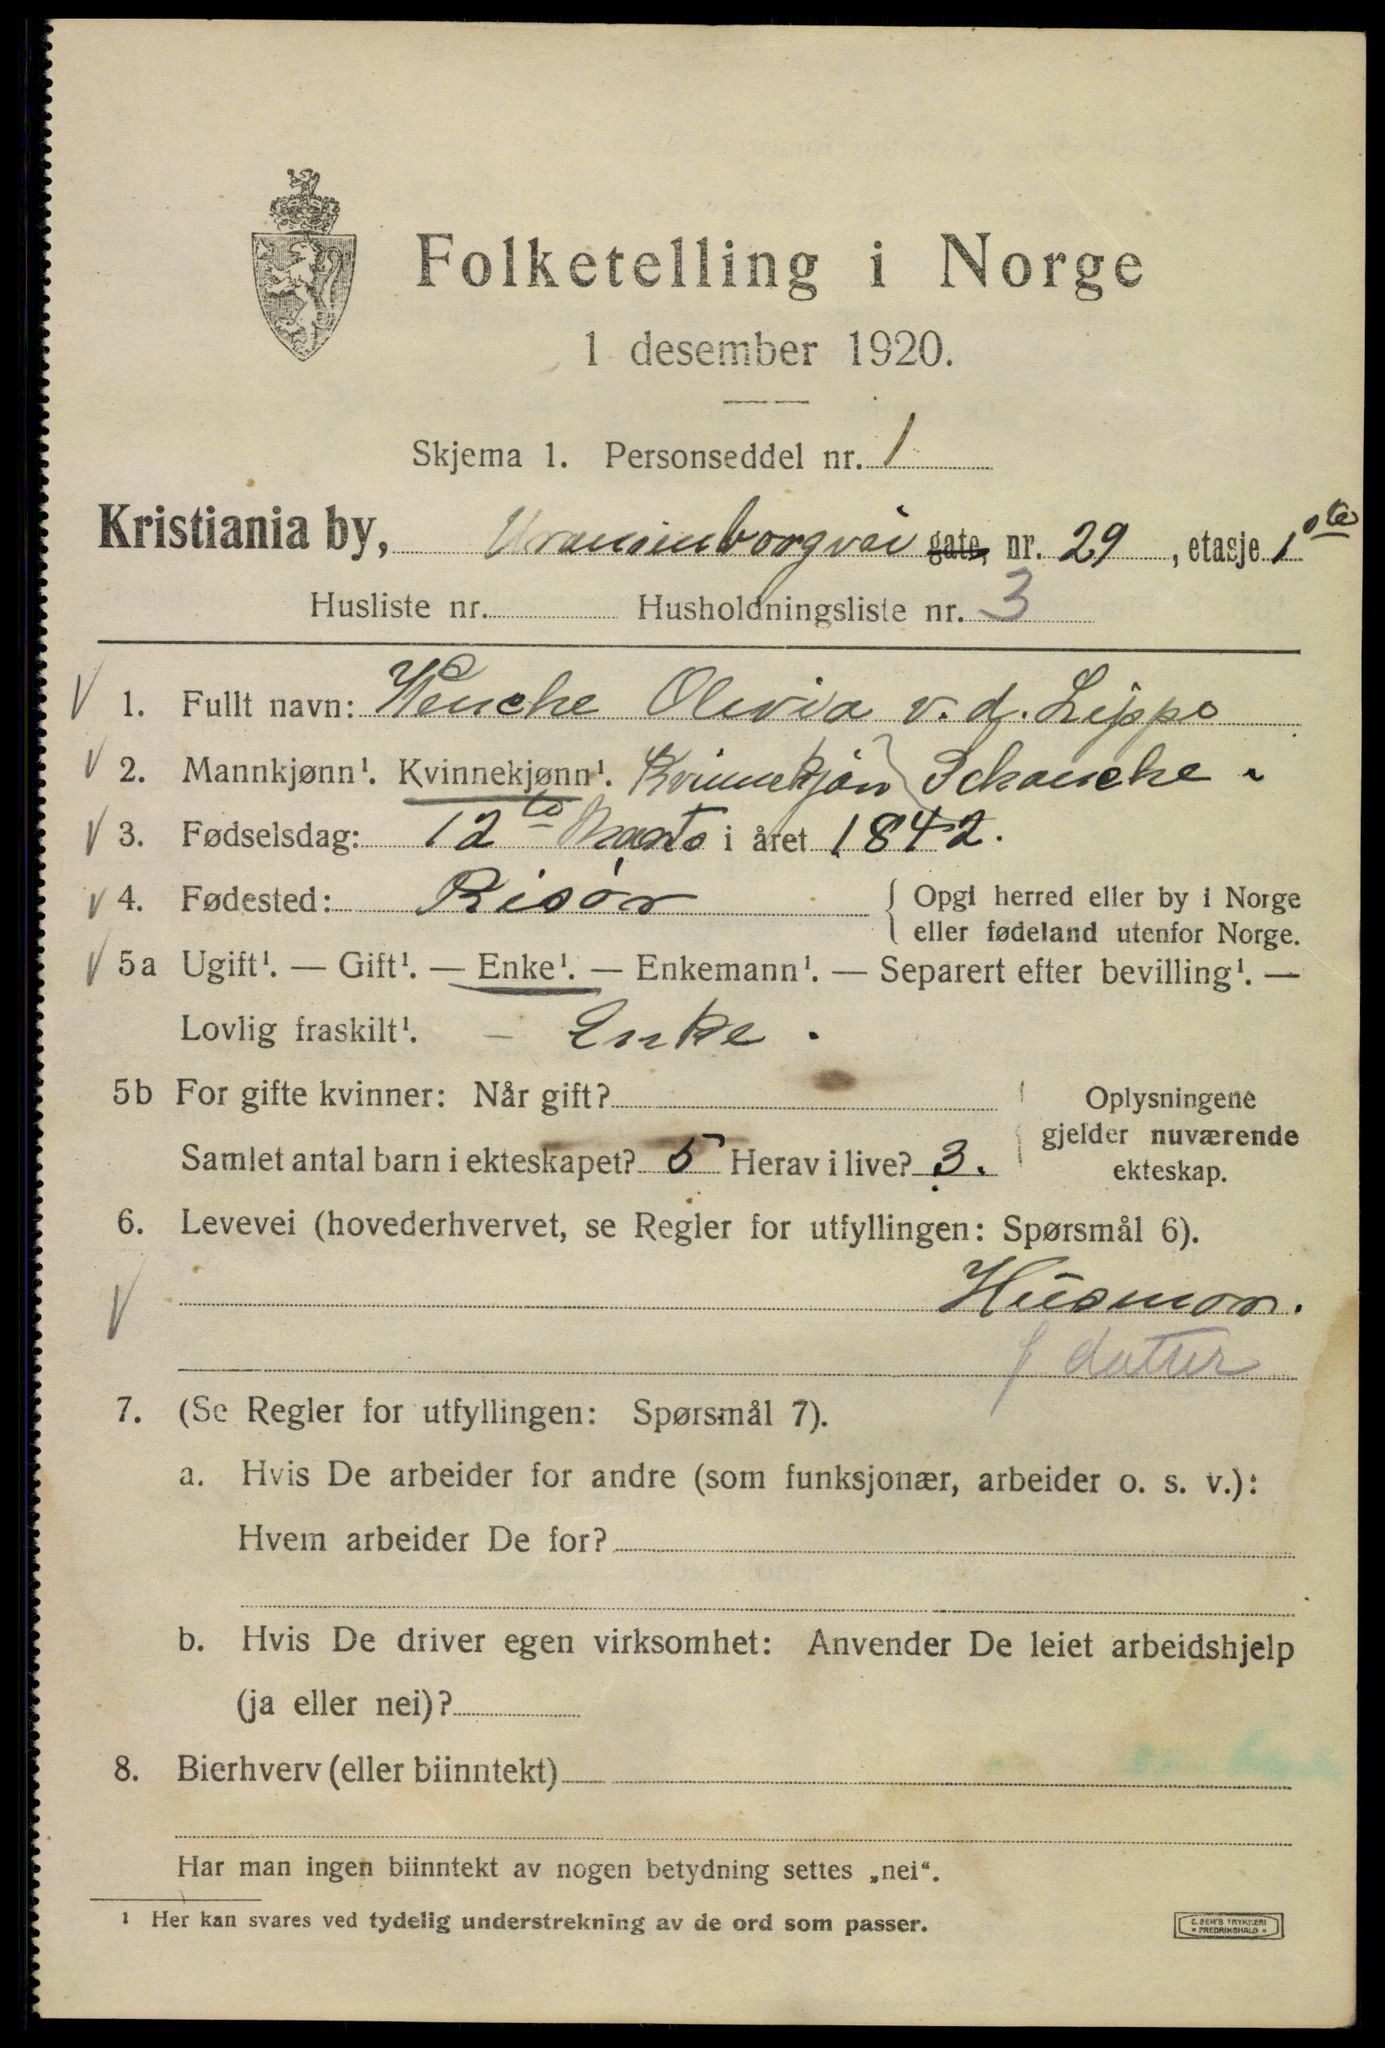 Folketelling i Norge
1 desember 1920.
Skjema 1. Personseddel nr. 1
Kristiania by, Uranienborgvei gate, nr. 29, etasje 1ste
Husliste nr. Husholdningsliste nr. 3
1. Fullt navn: Wenche Olivia v. d. Lippe
2. Mannkjønn¹. Kvinnekjønn¹. Kvinnekjøn Schanche.
3. Fødselsdag: 12te Marts i året 1842.
4. Fødested: Risør { Opgi herred eller by i Norge
eller fødeland utenfor Norge.
5a Ugift¹. — Gift¹. — Enke¹. — Enkemann¹. — Separert efter bevilling¹. —
Lovlig fraskilt¹. – Enke.
5b For gifte kvinner: Når gift?
Samlet antal barn i ekteskapet? 5 Herav i live? 3.
Oplysningene
gjelder nuværende
ekteskap.
6. Levevei (hovederhvervet, se Regler for utfyllingen: Spørsmål 6).
Husmor.
f datter
7. (Se Regler for utfyllingen: Spørsmål 7).
a. Hvis De arbeider for andre (som funksjonær, arbeider o. s. v.):
Hvem arbeider De for?
b. Hvis De driver egen virksomhet: Anvender De leiet arbeidshjelp
(ja eller nei)?
8. Bierhverv (eller biinntekt)
Har man ingen biinntekt av nogen betydning settes „nei“.
¹ Her kan svares ved tydelig understrekning av de ord som passer.
E. SEM'S TRYKKERI
* FREDRIKSHALD *